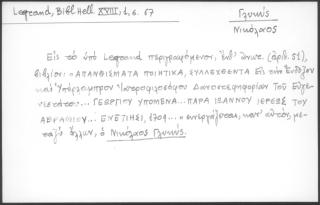 Legrand, Bibl. Hell. XVIII, 1, σ. 67
Γλυκύς
Νικόλαος
Εἰς τὸ ὑπὸ Legrand περιγραφόμενον, ἐνθ' ἄνωτ. (ἀριθ. 51),
βιβλίον: «ΑΠΑΝΘΙΣΜΑΤΑ ΠΟΙΗΤΙΚΑ, ΣΥΛΛΕΧΘΕΝΤΑ Εἰς τὴν Ἔνδοξον
καὶ Ὑπέρλαμπρον Ἰατροφιλοσόφου Δαφνοστεφηφορίαν Τοῦ Εὐγε-
νεστάτου... ΓΕΩΡΓΙΟΥ ΥΠΟΜΕΝΑ... ΠΑΡΑ ΙΩΑΝΝΟΥ ΙΕΡΕΩΣ ΤΟΥ
ΑΒΡΑΜΙΟΥ... ΕΝΕΤΙΗΣΙ, 1709... » συνεργάζεται, κατ' αὐτόν, με-
ταξὺ ἄλλων, ὁ Νικόλαος Γλυκύς.